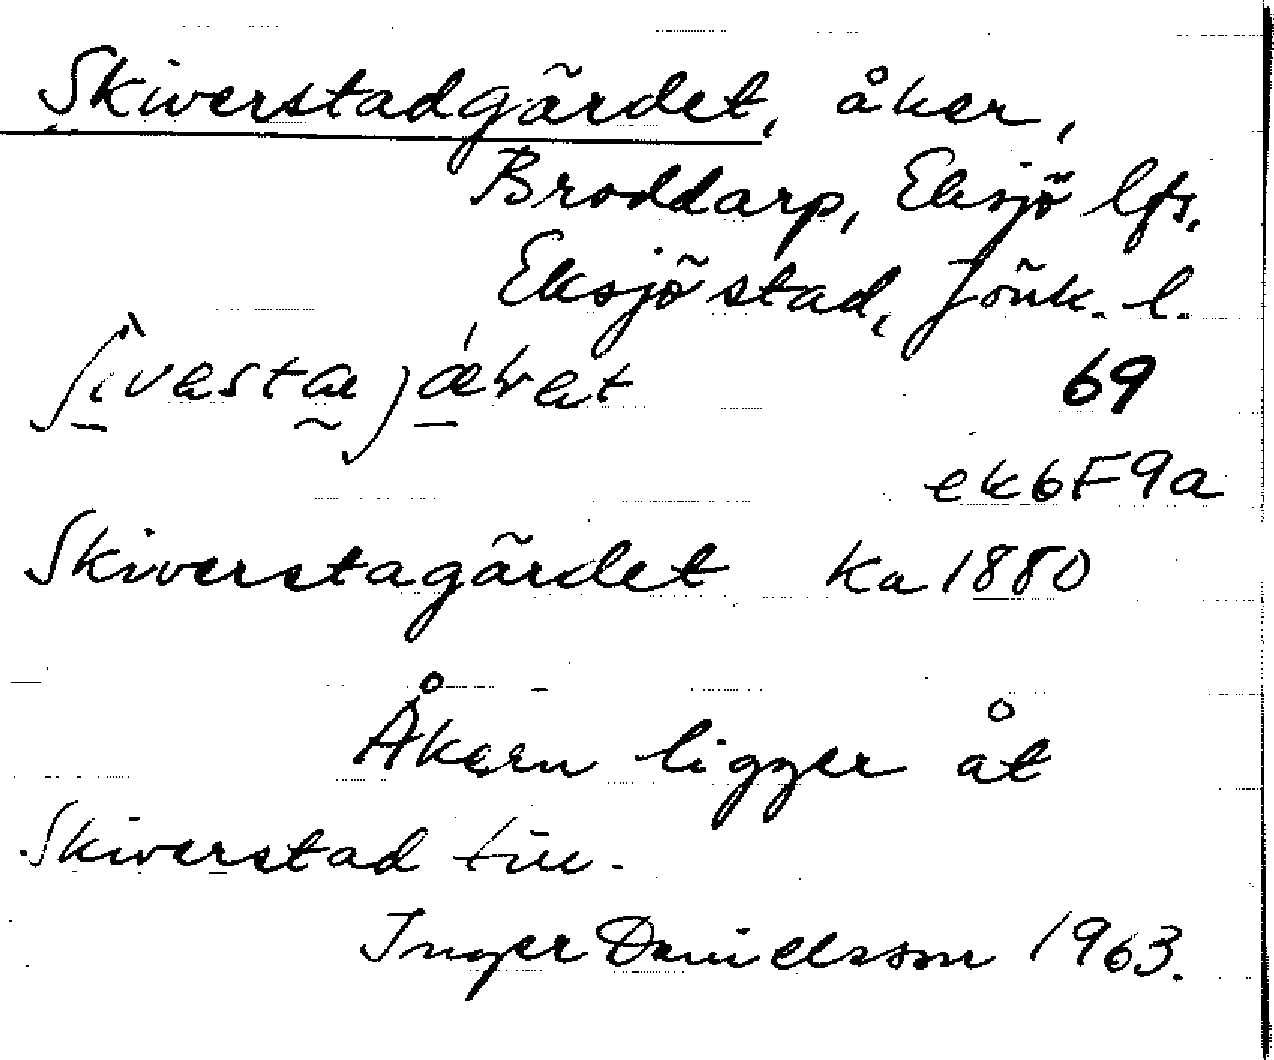 Skiverstadgärdet, åker,
Broddarp, Eksjö lfs,
Eksjö stad, Jönk. l.
69
ek6F9a
Skiverstagärdet ka 1880
Åkern ligger åt
Skiverstad till.
Inger Danielsson 1963.